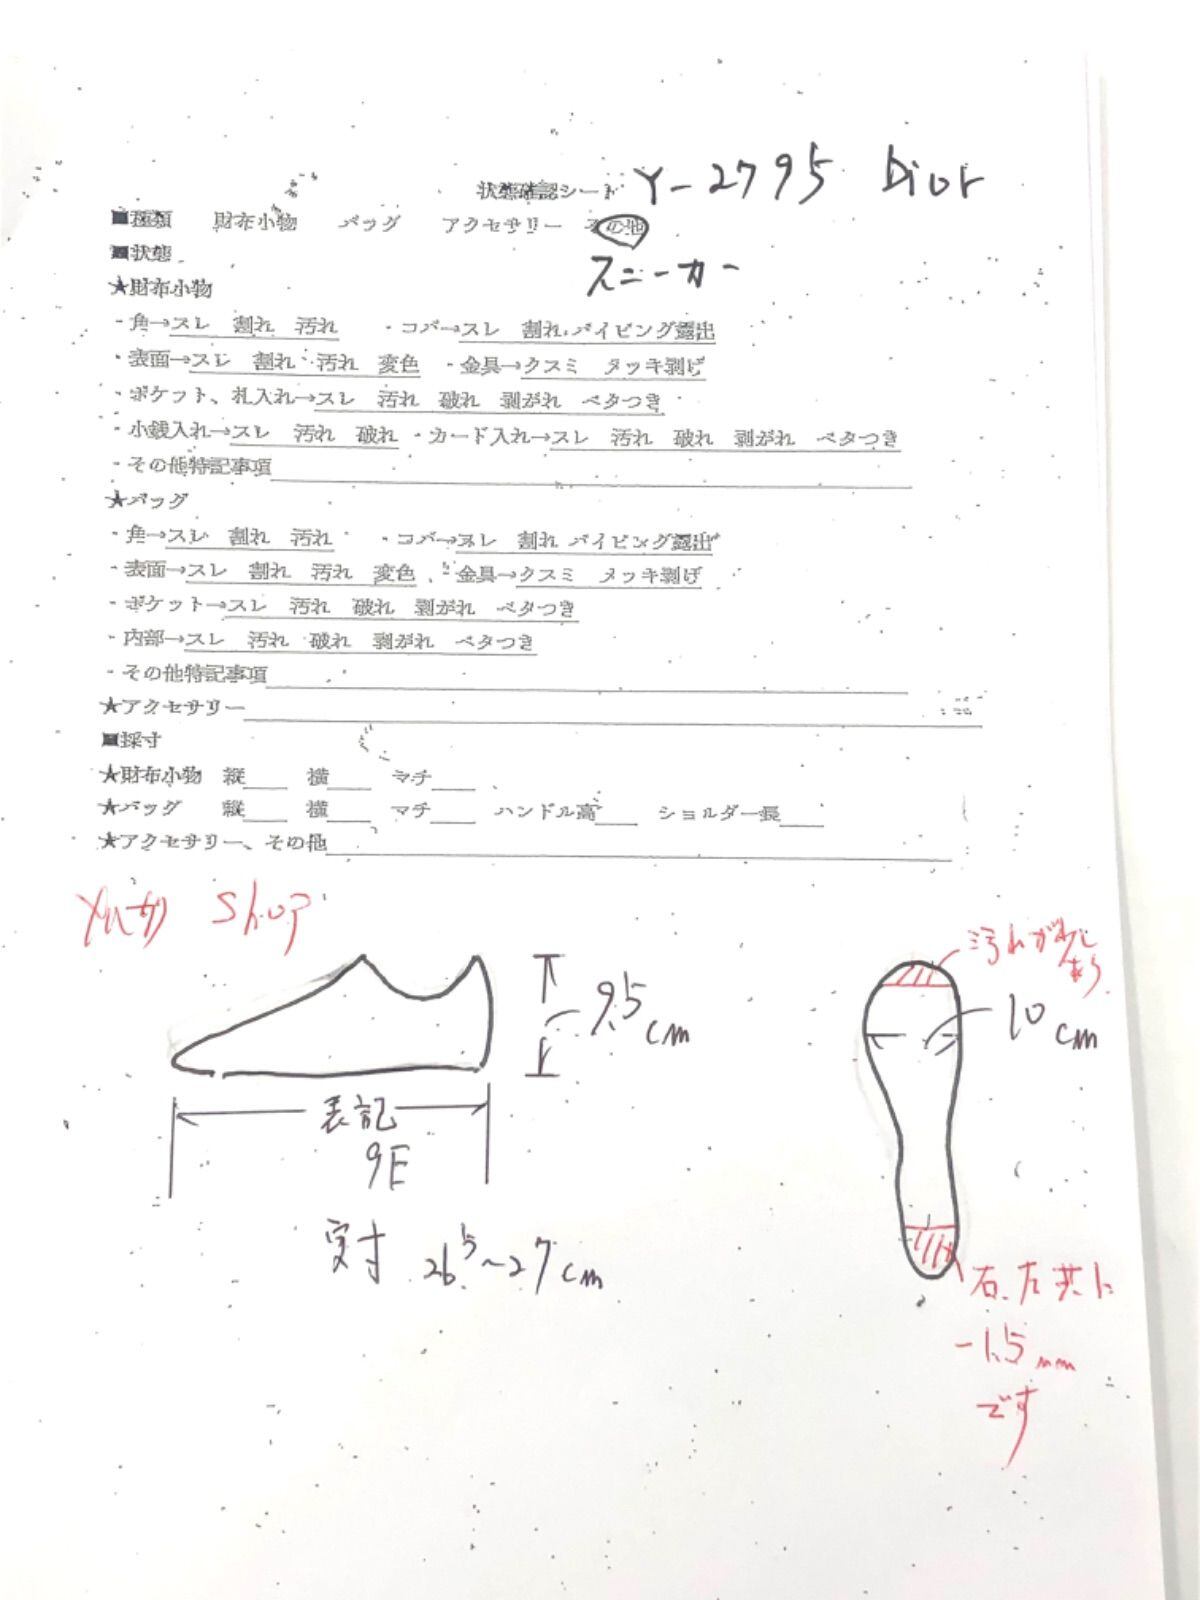 状態確認シート Y-2795 Dior
■種類 財布小物 バッグ アクセサリー その他
スニーカー
■状態
★財布小物
・角→スレ 割れ 汚れ ・コバ→スレ 割れ パイピング露出
・表面→スレ 割れ 汚れ 変色 ・金具→クスミ メッキ剥げ
・ポケット、札入れ→スレ 汚れ 破れ 剥がれ ベタつき
・小銭入れ→スレ 汚れ 破れ ・カード入れ→スレ 汚れ 破れ 剥がれ ベタつき
・その他特記事項
★バッグ
・角→スレ 割れ 汚れ ・コバ→スレ 割れ パイピング露出
・表面→スレ 割れ 汚れ 変色 ・金具→クスミ メッキ剥げ
・ポケット→スレ 汚れ 破れ 剥がれ ベタつき
・内部→スレ 汚れ 破れ 剥がれ ベタつき
・その他特記事項
★アクセサリー
■採寸
★財布小物 縦 横 マチ
★バッグ 縦 横 マチ ハンドル高 ショルダー長
★アクセサリー、その他
Shop
汚れが少し
あり
9.5cm
10cm
表記
9E
実寸 26.5~27cm
右、左共に
-1.5mm
です